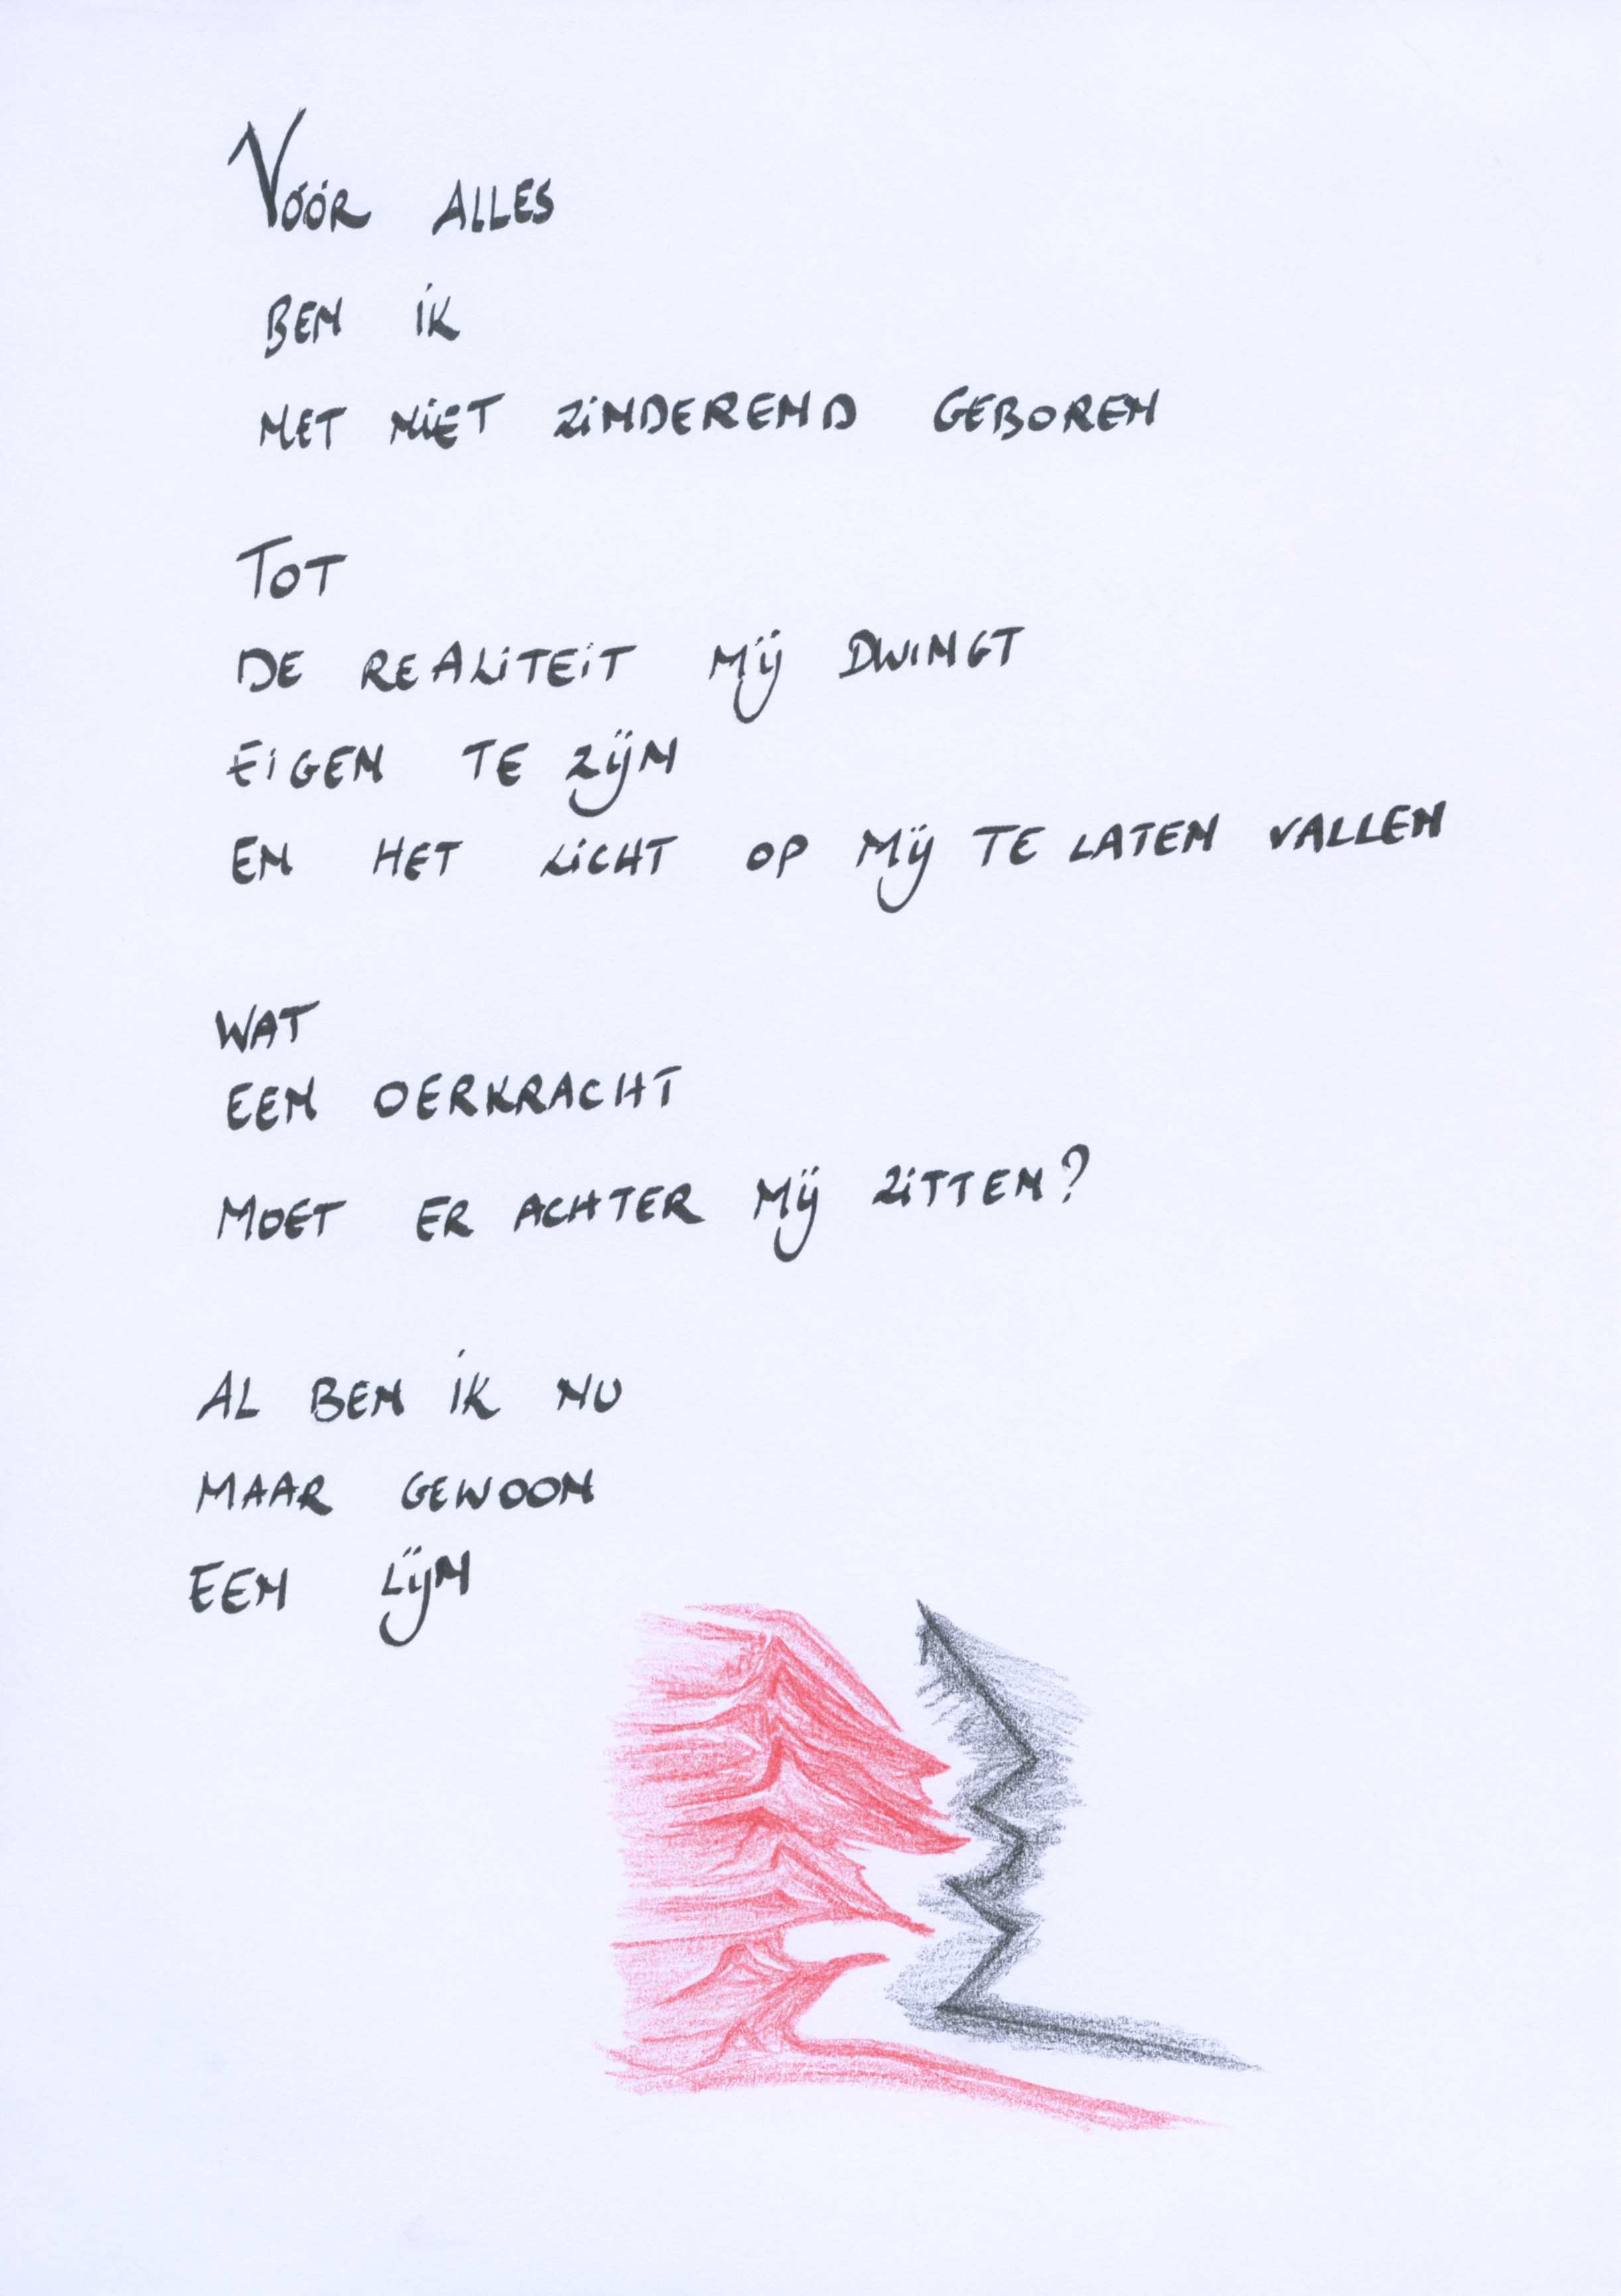 Vóór ALLES
BEN ÍK
NET NIET ZINDEREND GEBOREN
TOT
DE REALITEIT MIJ DWINGT
EIGEN TE ZIJN
EN HET LICHT OP MIJ TE LATEN VALLEN
WAT
EEN OERKRACHT
MOET ER ACHTER MIJ ZITTEN?
AL BEN ÍK NU
MAAR GEWOON
EEN LIJN